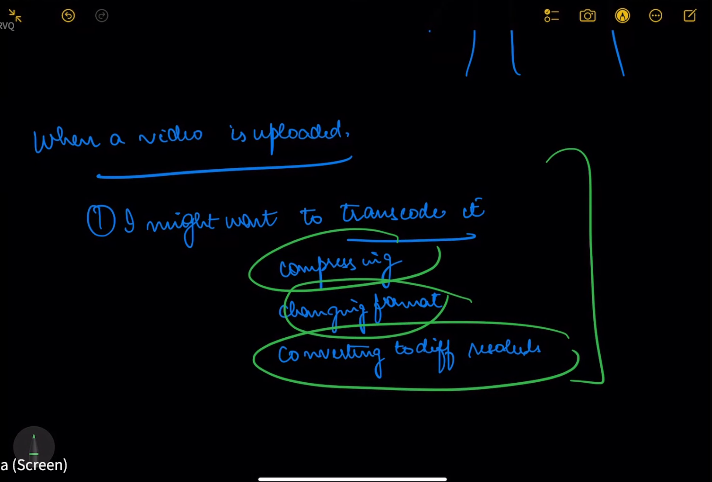 RVQ
When a video is uploaded.
① I might want to transcode it
compressing
changing format
converting to diff
a (Screen)